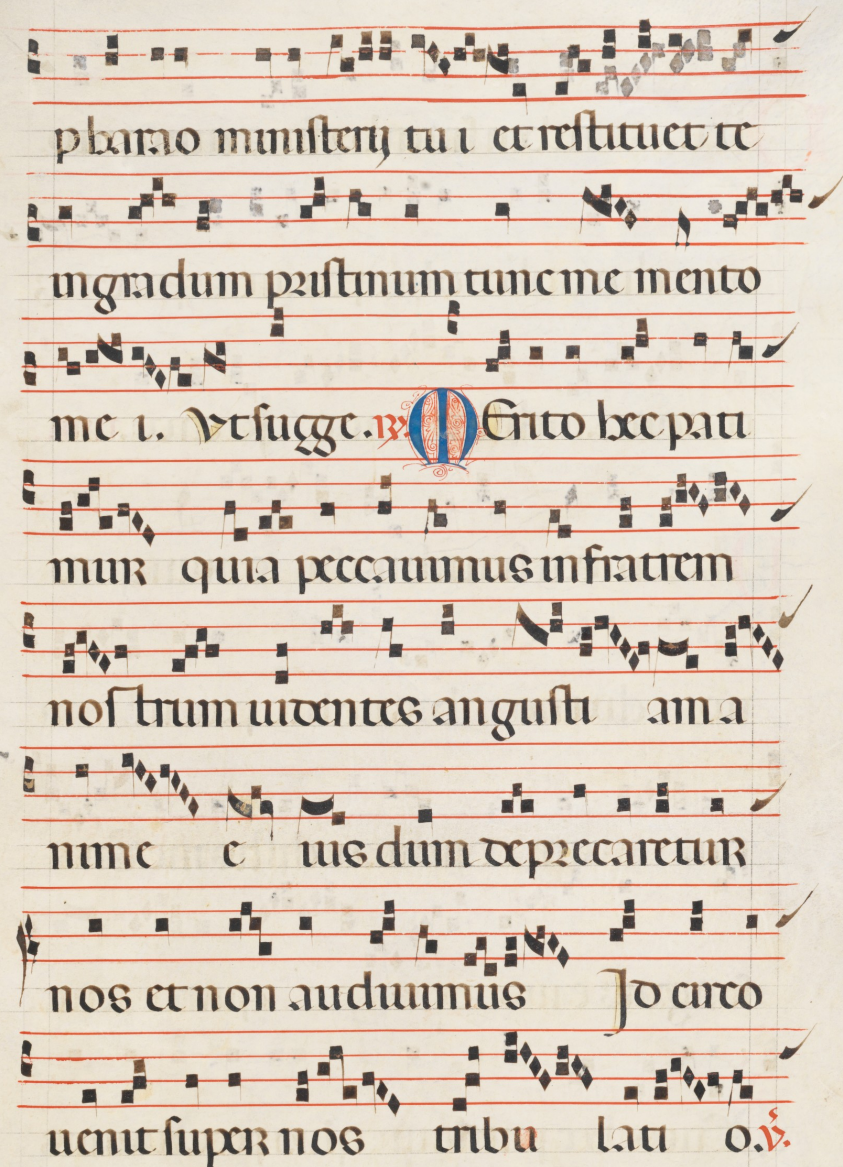 pharao ministerij tu i et restituet te
in gradum pristinum tunc me mento
me i. Vt sugge. ℟. MErito hec pati
mur quia peccauimus in fratrem
nos trum uidentes angusti am a
nime e ius dum deprecaretur
nos et non audiuimus Id circo
uenit super nos tribu lati o. ℣.